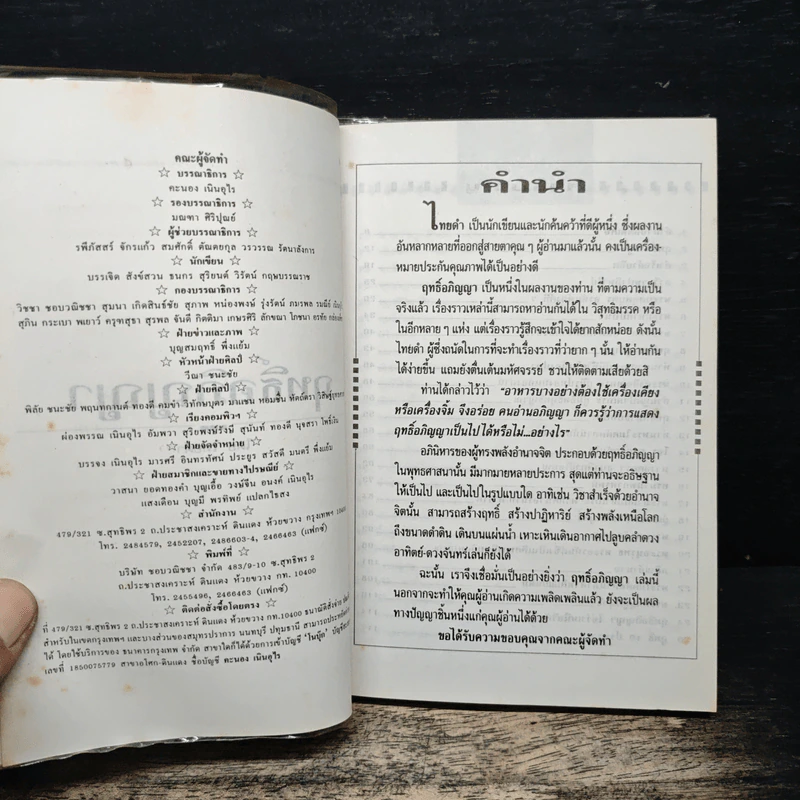 คณะผู้จัดทำ
☆ บรรณาธิการ ☆
คะนอง เนินอุไร
☆ รองบรรณาธิการ ☆
มณฑา ศิริปุณย์
☆ ผู้ช่วยบรรณาธิการ ☆
รพีภัสสร์ จักรแก้ว สมศักดิ์ ตัณตยกุล วรวรรณ รัตนาลังการ
☆ นักเขียน ☆
บรรเจิด สังข์สวน ธนกร สุริยนต์ วิรัตน์ กฤษบรรณราช
☆ กองบรรณาธิการ ☆
วิชชา ชอบวณิชชา สุมนา เกิดสินธ์ชัย สุภาพ หน่องพงษ์ รุ่งรัตน์ ภมรพล
สุภิน กระเบา พเยาว์ ครุฑสุธา สุรพล จันดี กิตติมา เกษรศิริ ลักขณา โภชนา อรทัย
☆ ฝ่ายข่าวและภาพ ☆
บุญสมฤทธิ์ พึ่งแย้ม
☆ หัวหน้าฝ่ายศิลป์ ☆
วีณา ชนะชัย
☆ ฝ่ายศิลป์ ☆
พิลัย ชนะชัย พฤนทกานต์ ทองดี คมขำ วิทักษบุตร มาแชน หอมชื่น ทัตถัตรา
☆ เรียงคอมพิวฯ ☆
ผ่องพรรณ เนินอุไร อัมพวา สุริยพงษ์รังษี สุนันท์ ทองดี นุจสรา
☆ ฝ่ายจัดจำหน่าย ☆
บรรจง เนินอุไร มารศรี อินทรทัศน์ ประยูร สวัสดี มนตรี พึ่งแย้ม
☆ ฝ่ายสมาชิกและขายทางไปรษณีย์ ☆
วาสนา ยอดทองคำ บุญเอื้อ วงษ์จีน อนงค์ เนินอุไร
แสงเดือน บุญมี พรทิพย์ แปลกไธสง
☆ สำนักงาน ☆
479/321 ซ.สุทธิพร 2 ถ.ประชาสงเคราะห์ ดินแดง ห้วยขวาง กรุงเทพฯ 10400
โทร. 2484579, 2452207, 2486603-4, 2466463 (แฟกซ์)
☆ พิมพ์ที่ ☆
บริษัท ชอบวณิชชา จำกัด 483/9-10 ซ.สุทธิพร 2
ถ.ประชาสงเคราะห์ ดินแดง ห้วยขวาง กท. 10400
โทร. 2455496, 2466463 (แฟกซ์)
☆ ติดต่อสั่งซื้อโดยตรง ☆
ที่ 479/321 ซ.สุทธิพร 2 ถ.ประชาสงเคราะห์ ดินแดง ห้วยขวาง กท.10400 ธนาณัติสั่งจ่าย
สำหรับในเขตกรุงเทพฯ และบางส่วนของสมุทรปราการ นนทบุรี ปทุมธานี
ได้ โดยใช้บริการของ ธนาคารกรุงเทพ จำกัด สาขาใดก็ได้ด้วยการเข้าบัญชี
เลขที่ 1850075779 สาขาอโศก-ดินแดง ชื่อบัญชี คะนอง เนินอุไร
คำนำ
ไทยดำ เป็นนักเขียนและนักค้นคว้าที่ดีผู้หนึ่ง ซึ่งผลงาน
อันหลากหลายที่ออกสู่สายตาคุณ ๆ ผู้อ่านมาแล้วนั้น คงเป็นเครื่อง-
หมายประกันคุณภาพได้เป็นอย่างดี
ฤทธิ์อภิญญา เป็นหนึ่งในผลงานของท่าน ที่ตามความเป็น
จริงแล้ว เรื่องราวเหล่านี้สามารถหาอ่านกันได้ใน วิสุทธิมรรค หรือ
ในอีกหลาย ๆ แห่ง แต่เรื่องราวรู้สึกจะเข้าใจได้ยากสักหน่อย ดังนั้น
ไทยดำ ผู้ซึ่งถนัดในการที่จะทำเรื่องราวที่ว่ายาก ๆ นั้น ให้อ่านกัน
ได้ง่ายขึ้น แถมยังตื่นเต้นมหัศจรรย์ ชวนให้ติดตามเสียด้วยสิ
ท่านได้กล่าวไว้ว่า "อาหารบางอย่างต้องใช้เครื่องเคียง
หรือเครื่องจิ้ม จึงอร่อย คนอ่านอภิญญา ก็ควรรู้ว่าการแสดง
ฤทธิ์อภิญญาเป็นไปได้หรือไม่...อย่างไร"
อภินิหารของผู้ทรงพลังอำนาจจิต ประกอบด้วยฤทธิ์อภิญญา
ในพุทธศาสนานั้น มีมากมายหลายประการ สุดแต่ท่านจะอธิษฐาน
ให้เป็นไป และเป็นไปในรูปแบบใด อาทิเช่น วิชาสำเร็จด้วยอำนาจ
จิตนั้น สามารถสร้างฤทธิ์ สร้างปาฏิหาริย์ สร้างพลังเหนือโลก
ถึงขนาดดำดิน เดินบนแผ่นน้ำ เหาะเหินเดินอากาศไปลูบคลำดวง
อาทิตย์-ดวงจันทร์เล่นก็ยังได้
ฉะนั้น เราจึงเชื่อมั่นเป็นอย่างยิ่งว่า ฤทธิ์อภิญญา เล่มนี้
นอกจากจะทำให้คุณผู้อ่านเกิดความเพลิดเพลินแล้ว ยังจะเป็นผล
ทางปัญญาชิ้นหนึ่งแก่คุณผู้อ่านได้ด้วย
ขอได้รับความขอบคุณจากคณะผู้จัดทำ